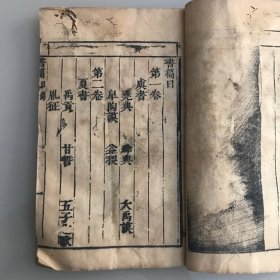 書篇目
第一卷
虞書
堯典 舜典 大禹謨
皐陶謨 益稷
第二卷
夏書
禹貢 甘誓 五子之歌
胤征